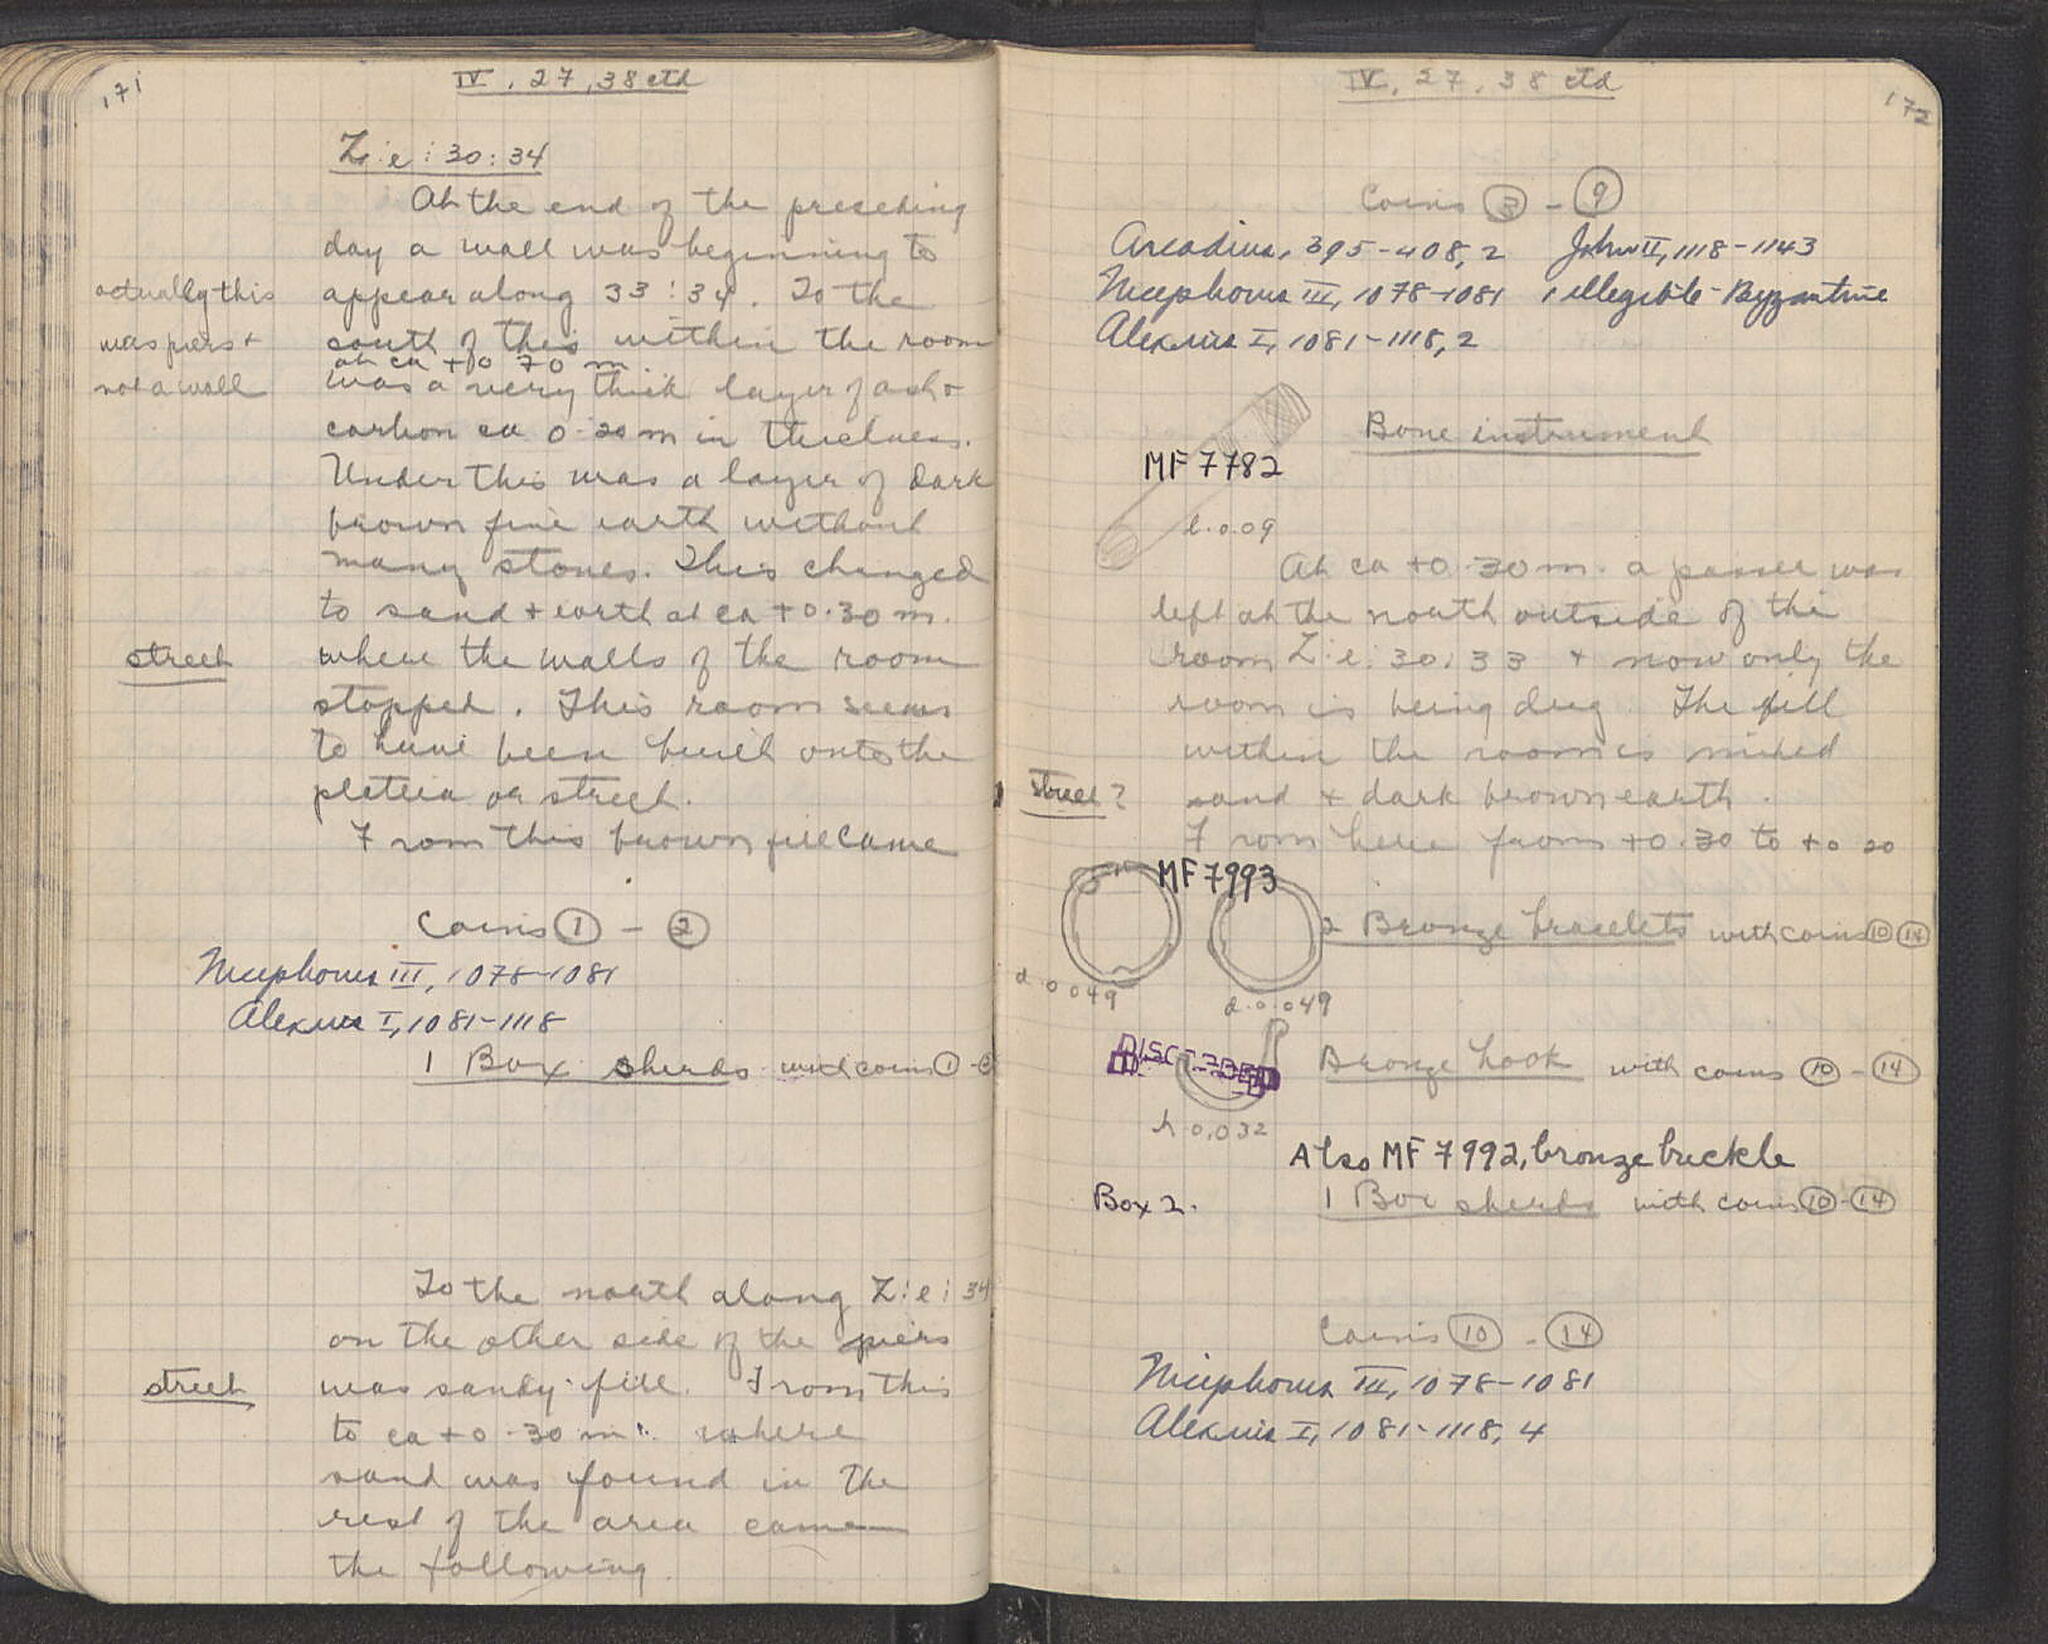 171
IV, 27, 38 ctd
Z:e:30:34
At the end of the preseding
day a wall was beginning to
appear along 33:34. To the
south of this within the room
at ca +0.70 m
was a very thick layer of ash +
carbon ca 0.20 m in thickness.
Under this was a layer of dark
brown fine earth without
many stones. This changed
to sand + earth at ca +0.30 m.
where the walls of the room
stopped. This room seems
to have been built onto the
plateia or street.
From this brown fill came
actually this
was piers +
not a wall
street
Coins 1 - 2
Nicephorus III, 1078-1081
Alexius I, 1081-1118
1 Box sherds with coins 1 - 2
To the north along Z:e:34
on the other side of the piers
was sandy fill. From this
to ca +0.30 m. where
sand was found in the
rest of the area came
the following.
street
IV, 27, 38 ctd
172
Coins 3 - 9
Arcadius, 395-408, 2 John II, 1118-1143
Nicephorus III, 1078-1081 1 illegible-Byzantine
Alexius I, 1081-1118, 2
Bone instrument
MF 7782
l. 0.09
At ca +0.30 m. a passee was
left at the north outside of the
room Z:e:30:33 + now only the
room is being dug. The fill
within the room is mixed
sand & dark brown earth.
From here from +0.30 to +0.20
street?
MF 7993
2 Bronze bracelets with coins 10 14
d. 0.049
d. 0.049
DISCARDED
Bronze hook with coins 10 - 14
h 0.032
Also MF 7992, bronze buckle
Box 2.
1 Box sherds with coins 10 - 14
Coins 10 - 14
Nicephorus III, 1078-1081
Alexius I, 1081-1118, 4